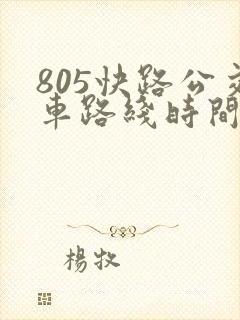 805快路公交
車路綫時間
楊牧